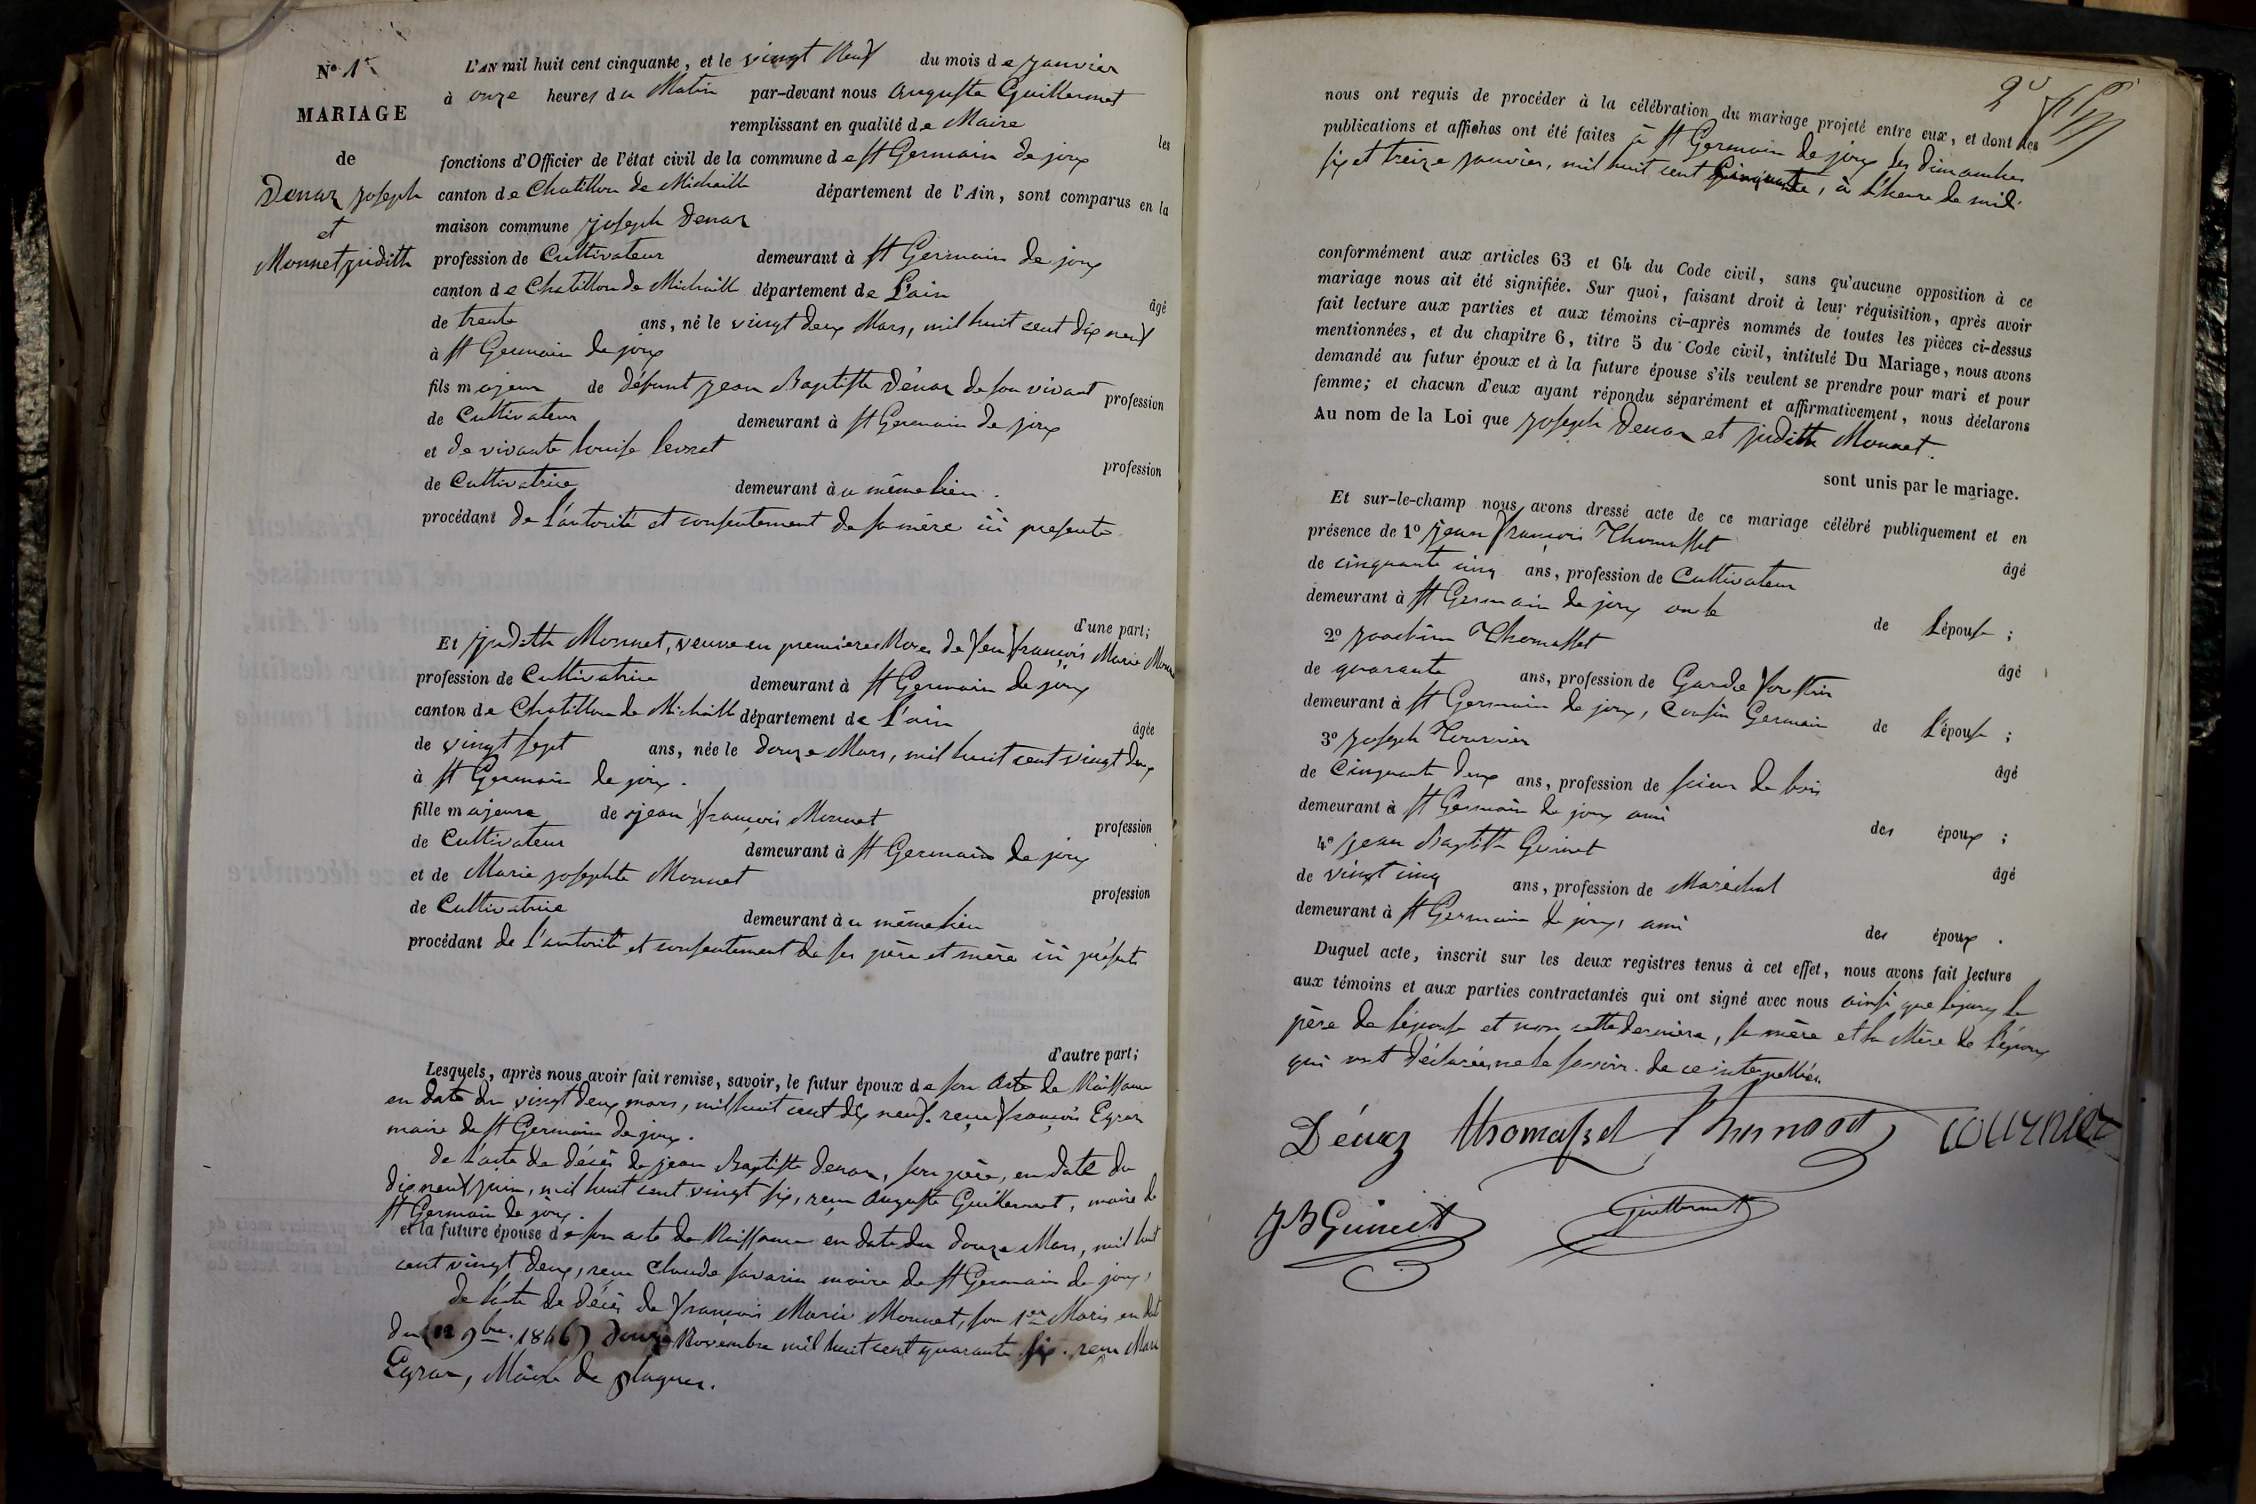 N° 1er
MARIAGE
de
Denaz Joseph
et
Monnet Judith
L'AN mil huit cent cinquante, et le vingt Neuf du mois de Janvier
à onze heures du Matin par-devant nous Auguste Guillermet
remplissant en qualité de Maire les
fonctions d'Officier de l'état civil de la commune de St Germain de joux
canton de Chatillon de Michaille département de l'Ain, sont comparus en la
maison commune Joseph Denaz
profession de Cultivateur demeurant à St Germain de joux
canton de Chatillon de Michaille département de L'ain âgé
de trente ans, né le vingt deux Mars, mil huit cent dix neuf
à St Germain de joux
fils majeur de défunt Jean Baptiste Dénaz de son vivant profession
de Cultivateur demeurant à St Germain de joux
et de vivante Louise Levrat profession
de Cultivatrice demeurant à u même lieu.
procédant de l'autorité et consentement de sa mère ici présente
d'une part;
Et Judith Monnet, veuve en premières Noces de feu françois Marie Monnet
profession de Cultivatrice demeurant à St Germain de joux
canton de Chatillon de Michaille département de L'ain âgée
de vingt sept ans, née le douze Mars, mil huit cent vingt deux
à St Germain de joux.
fille majeure de Jean françois Monnet profession
de Cultivateur demeurant à St Germain de joux
et de Marie josephte Monnet profession
de Cultivatrice demeurant à u même lieu
procédant de l'autorité et consentement de ses père et mère ici présents
d'autre part;
Lesquels, après nous avoir fait remise, savoir, le futur époux de son Acte de Naissance
en date du vingt deux mars, mil huit cent dix neuf. reçu françois Egraz
maire de St Germain de joux.
de l'acte de décès de jean Baptiste Denaz, son père, en date du
dix neuf juin, mil huit cent vingt six, reçu Auguste Guillermet, maire de
St Germain de joux.
et la future épouse de son acte de Naissance en date du douze Mars, mil huit
cent vingt deux, reçu Claude Savarin maire de St Germain de joux,
de l'acte de décès de françois Marie Monnet, son 1er Maris en date
du (12 9bre 1846) douze Novembre mil huit cent quarante six. reçu Marie
Egraz, Maire de Plagnes.
2e
nous ont requis de procéder à la célébration du mariage projeté entre eux, et dont les
publications et affiches ont été faites à St Germain de joux les dimanches
six et treize janvier, mil huit cent Cinquante, à l'heure de midi
conformément aux articles 63 et 64 du Code civil, sans qu'aucune opposition à ce
mariage nous ait été signifiée. Sur quoi, faisant droit à leur réquisition, après avoir
fait lecture aux parties et aux témoins ci-après nommés de toutes les pièces ci-dessus
mentionnées, et du chapitre 6, titre 5 du Code civil, intitulé Du Mariage, nous avons
demandé au futur époux et à la future épouse s'ils veulent se prendre pour mari et pour
femme; et chacun d'eux ayant répondu séparément et affirmativement, nous déclarons
Au nom de la Loi que Joseph Denaz et Judith Monnet.
sont unis par le mariage.
Et sur-le-champ nous avons dressé acte de ce mariage célébré publiquement et en
présence de 1° Jean françois Thomasset âgé
de cinquante cinq ans, profession de Cultivateur
demeurant à St Germain de joux oncle de L'épouse ;
2° Joachim Thomasset âgé
de quarante ans, profession de Garde forestier
demeurant à St Germain de joux, Cousin Germain de L'épouse ;
3° Joseph Tournier âgé
de Cinquante deux ans, profession de scieur de bois
demeurant à St Germain de joux ami des époux ;
4° Jean Baptiste Guinet âgé
de vingt cinq ans, profession de Maréchal
demeurant à St Germain de joux, ami des époux .
Duquel acte, inscrit sur les deux registres tenus à cet effet, nous avons fait lecture
aux témoins et aux parties contractantes qui ont signé avec nous ainsi que l'époux le
père de l'épouse et non cette dernière, sa mère et la Mère de l'époux
qui ont déclarées ne le savoir. de ce interpellées.
Dénaz Thomasset Thomasset tournier
J B Guinet Guillermet